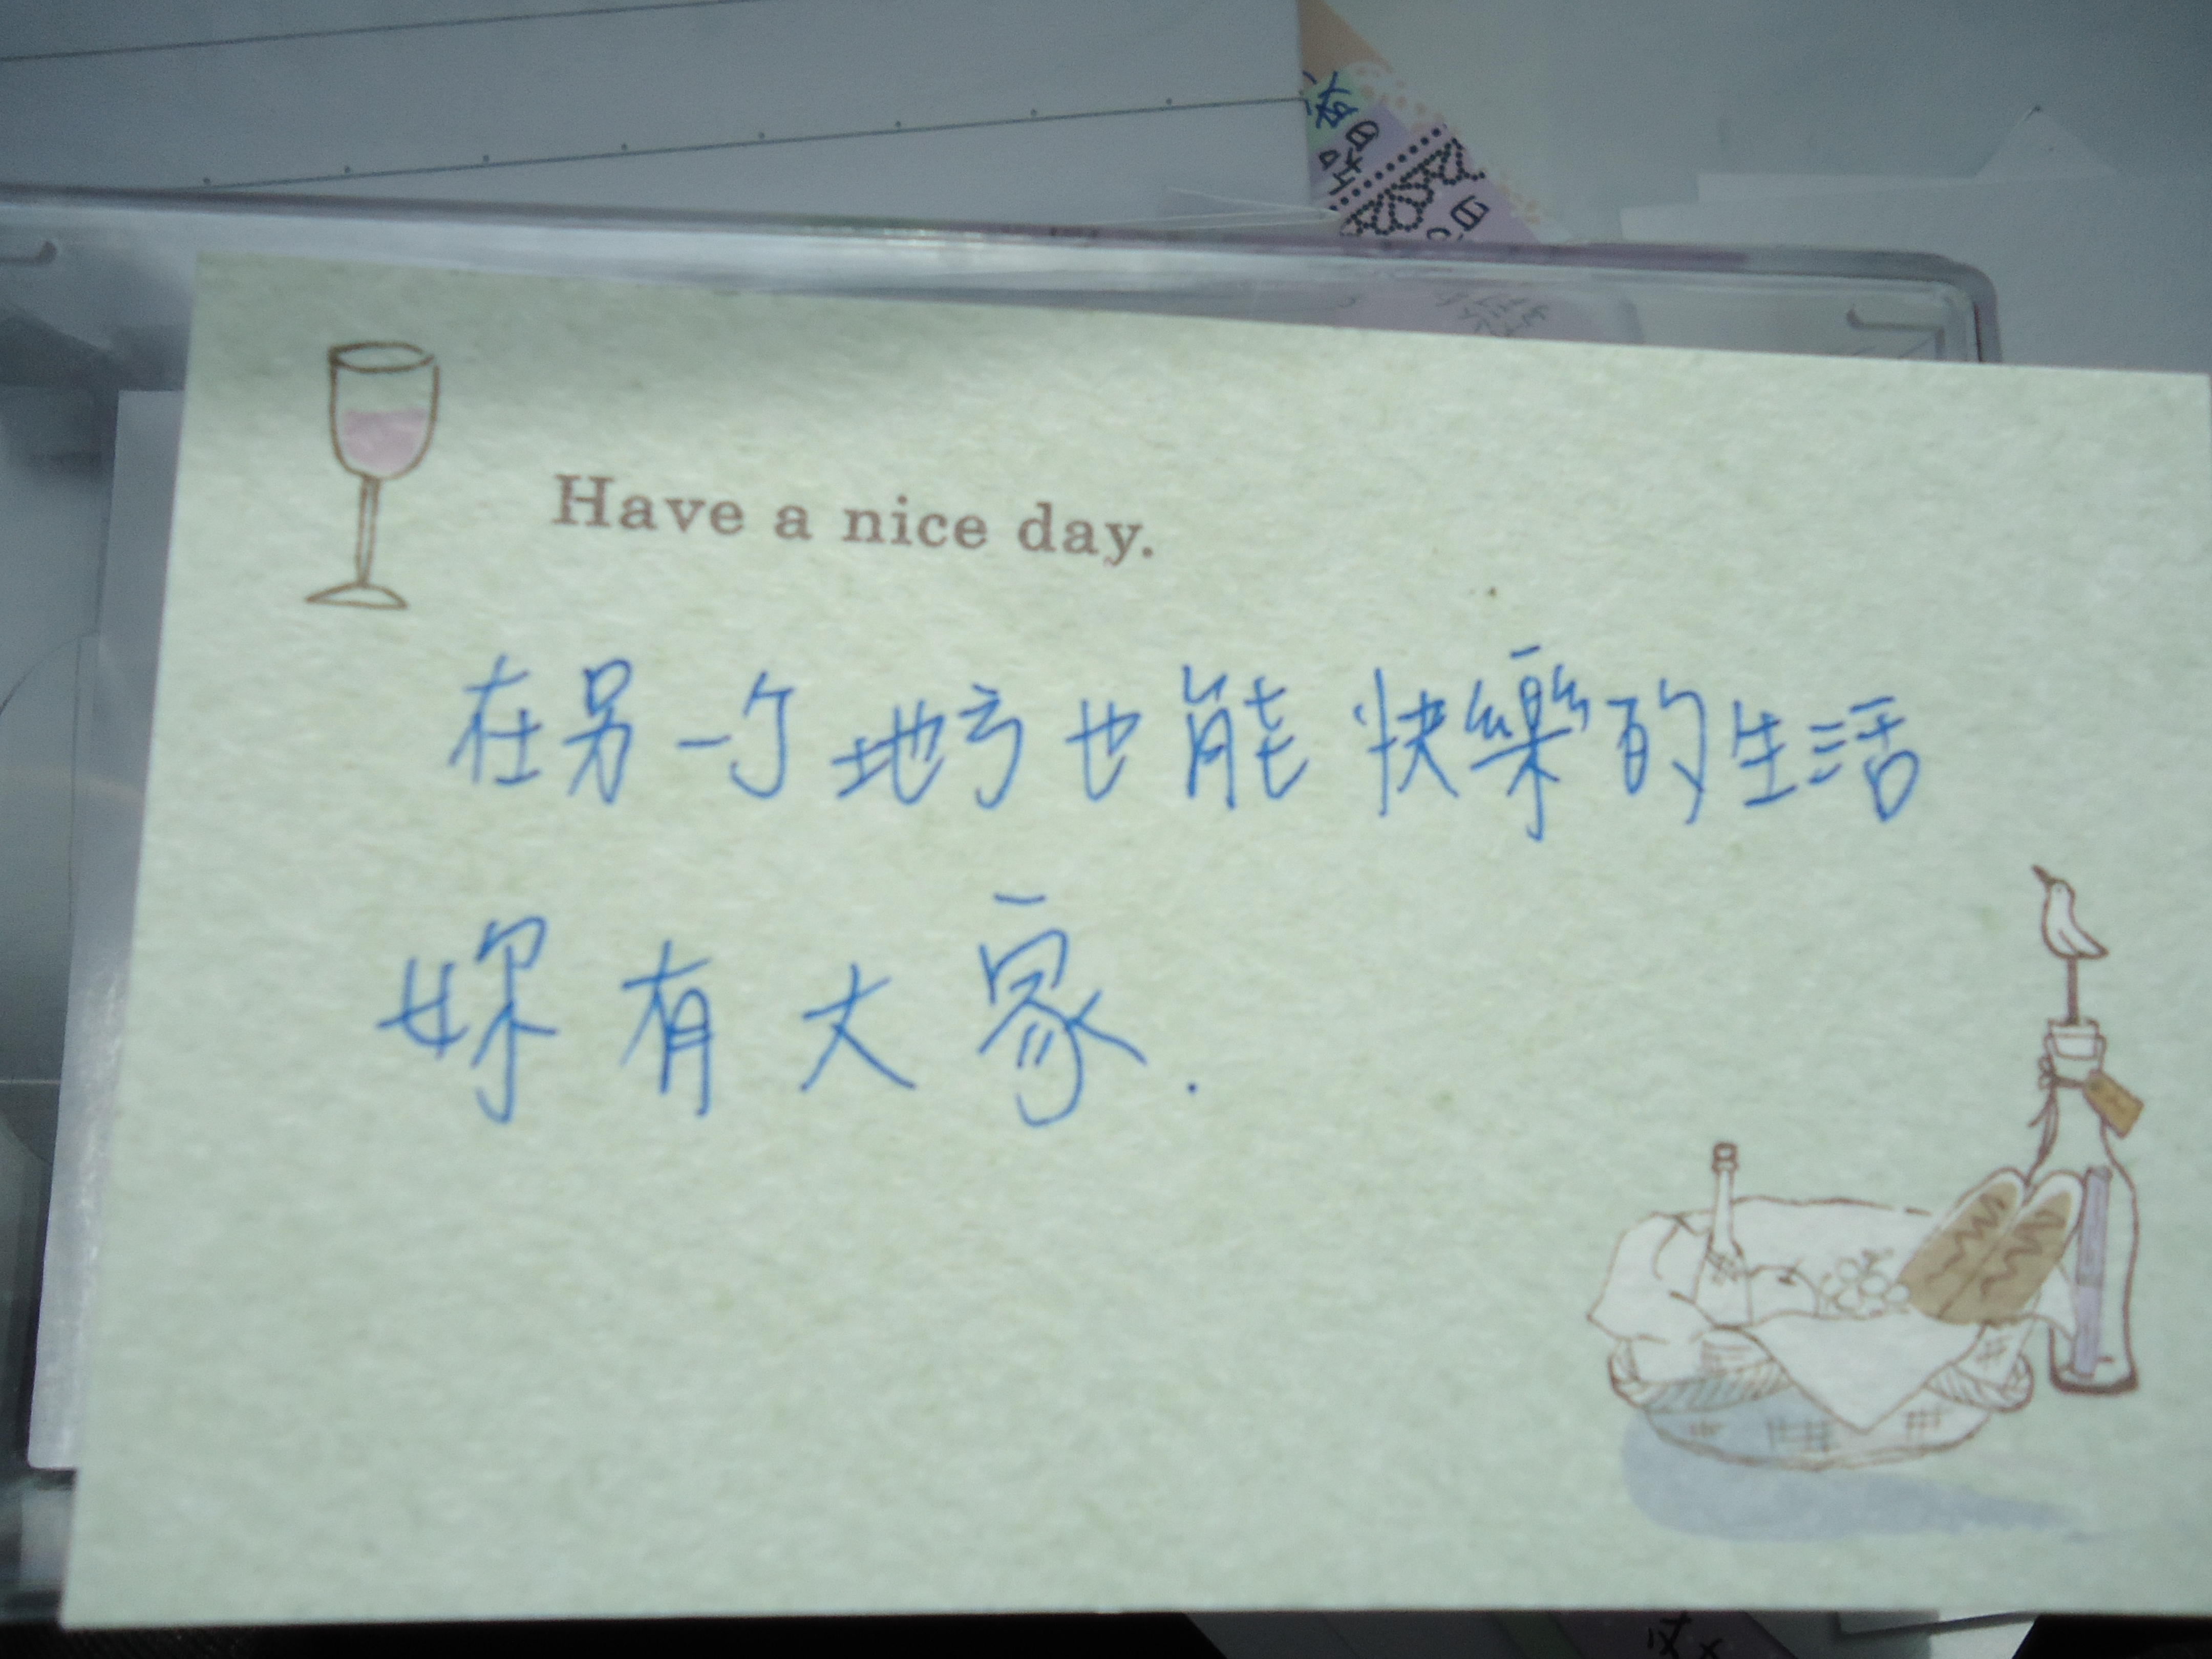 Have a nice day.
在另一个地方也能快樂的生活
妳有大家.